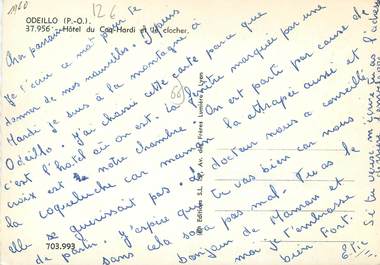 1960
12 €
ODEILLO (P.-O.).
37.956 - Hôtel du Coq-Hardi et le clocher.
Ma
je t'écris ce mot pour te
donner de mes nouvelles. Depuis
Mardi je suis à la montagne à
Odeillo. J'ai choisi cette carte parce que
c'est l'hôtel où on est. La fenêtre marquée par une
croix est notre chambre. On est parti par cause de
la coqueluche car maman l'a attrapée aussi et
elle se guérissait pas. Le docteur nous a conseillé
de partir. J'espère que tu vas bien car nous
sans cela sa va pas mal. Tu as le
bonjour de Maman et
moi je t'embrasse
bien fort.
66
Éditions S.L., Av. des Frères Lumière, Lyon
703.993
Si tu veux m'écrire tu as l'adresse